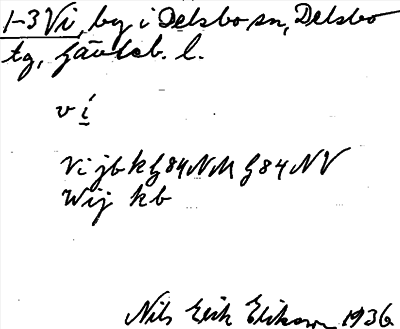 1-3 Vi, by i Delsbo sn, Delsbo
tg, Gävleb. l.
v í
Vi jb kg 84 NM G 84 NV
Wij kb
Nils Erik Eliksson 1936